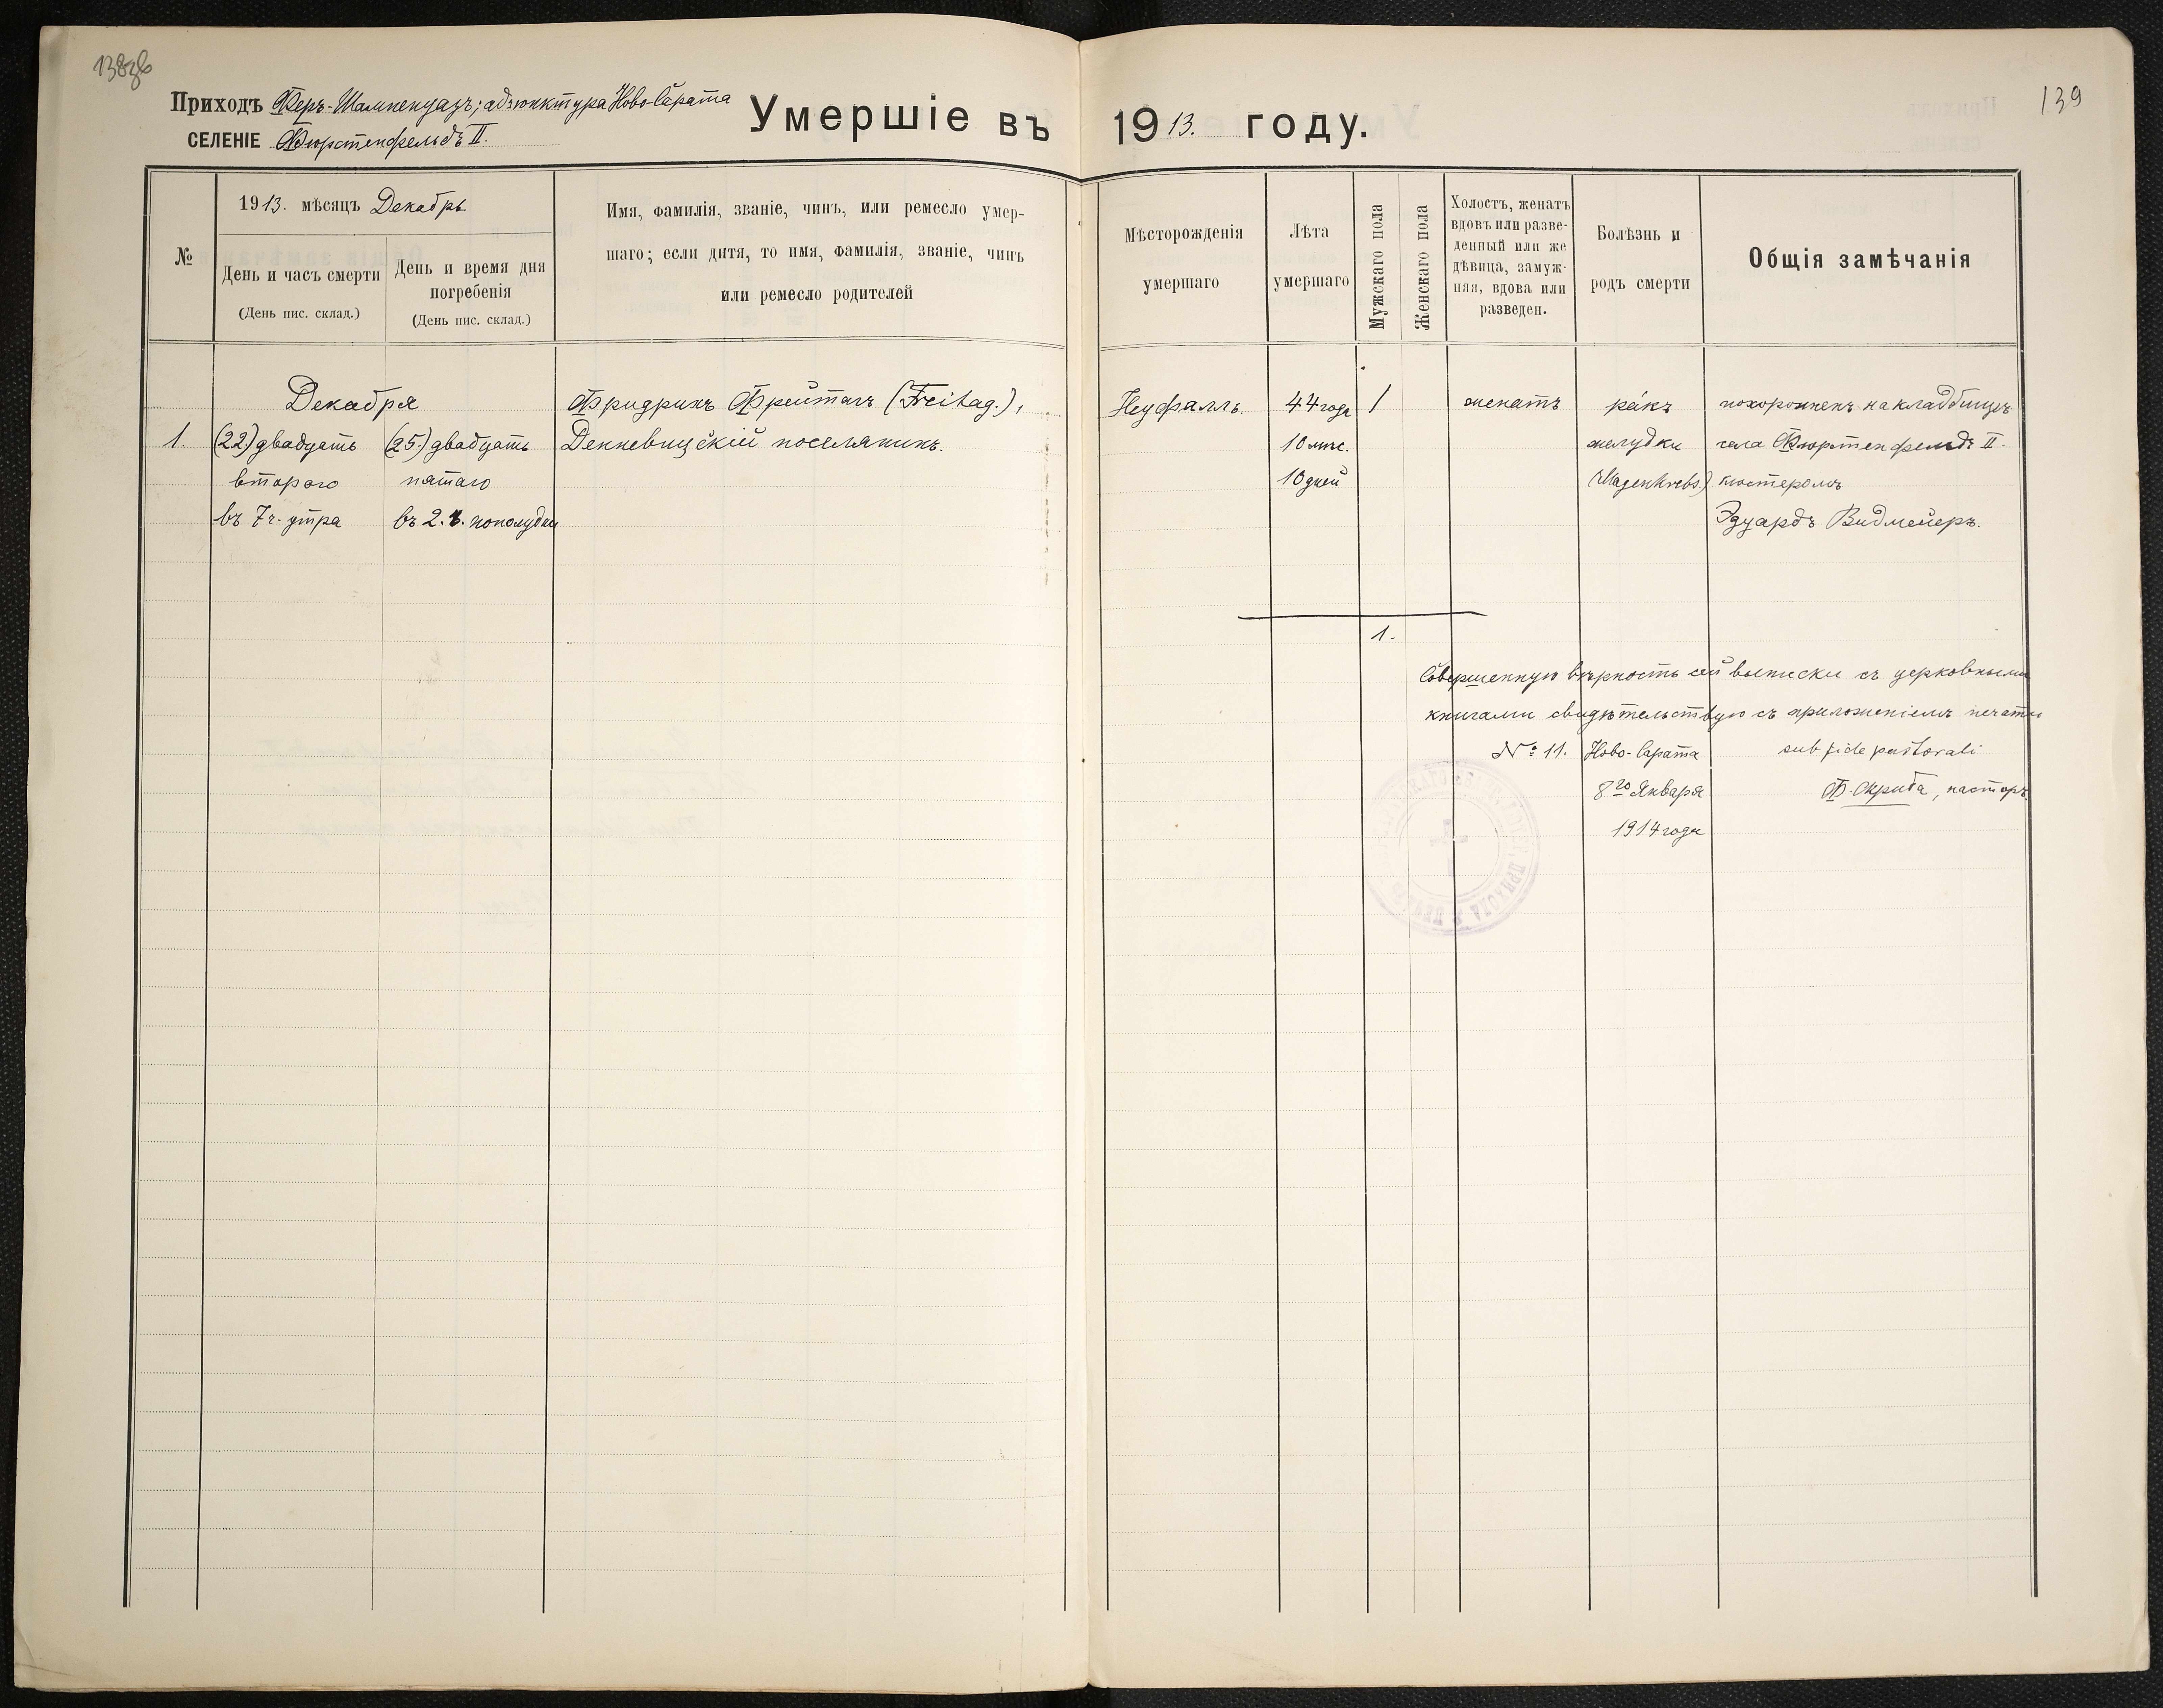 138об
139
Приходъ Феръ-Шампенуазъ; адъюнктура Ново-Сарата
СЕЛЕНІЕ Фюрстенфельдъ II.
Умершіе въ 1913. году.
№
1913. мѣсяцъ Декабрь
День и часъ смерти
(День пис. склад.)
День и время дня
погребенія
(День пис. склад.)
Имя, фамилія, званіе, чинъ, или ремесло умер-
шаго; если дитя, то имя, фамилія, званіе, чинъ
или ремесло родителей
Мѣсторожденія
умершаго
Лѣта
умершаго
Мужскаго пола
Женскаго пола
Холостъ, женатъ
вдовъ или разве-
денный или же
дѣвица, замуж-
няя, вдова или
разведен.
Болѣзнь и
родъ смерти
Общія замѣчанія
Декабря
1.
(22) двадцать
второго
въ 7 ч. утра
(25.) двадцать
пятаго
въ 2. ч. пополудни
Фридрихъ Фрейтагъ (Freitag.),
Денневицскій поселянинъ.
Неуфалль.
44 года
10 мѣс.
10 дней
1
женатъ
ракъ
желудка
(Magenkrebs.)
похороненъ на кладбищѣ
села Фюрстенфельдъ II.
кюстеромъ
Эдуардъ Видмейеръ.
1.
Совершенную вѣрность сей выписки съ церковными
книгами свидѣтельствую съ приложеніемъ печати
№ 11. Ново-Сарата sub fide pastorali
8го Января Ф. Скриба, пасторъ.
1914 года
ПРИХОДА